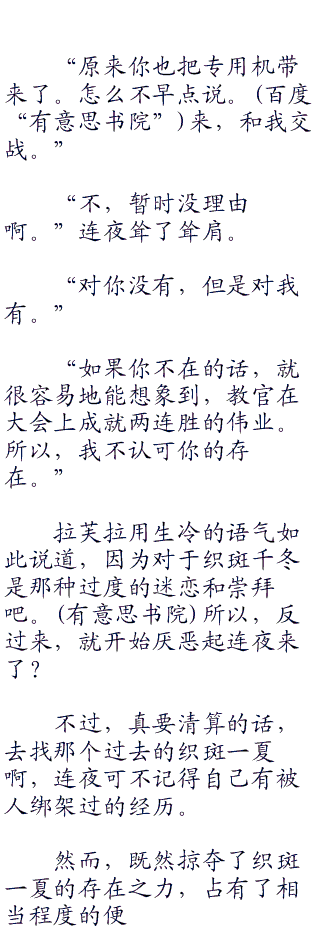 “原来你也把专用机带
来了。怎么不早点说。(百度
“有意思书院”)来，和我交
战。”
“不，暂时没理由
啊。”连夜耸了耸肩。
“对你没有，但是对我
有。”
“如果你不在的话，就
很容易地能想象到，教官在
大会上成就两连胜的伟业。
所以，我不认可你的存
在。”
拉芙拉用生冷的语气如
此说道，因为对于织斑千冬
是那种过度的迷恋和崇拜
吧。(有意思书院)所以，反
过来，就开始厌恶起连夜来
了？
不过，真要清算的话，
去找那个过去的织斑一夏
啊，连夜可不记得自己有被
人绑架过的经历。
然而，既然掠夺了织斑
一夏的存在之力，占有了相
当程度的便